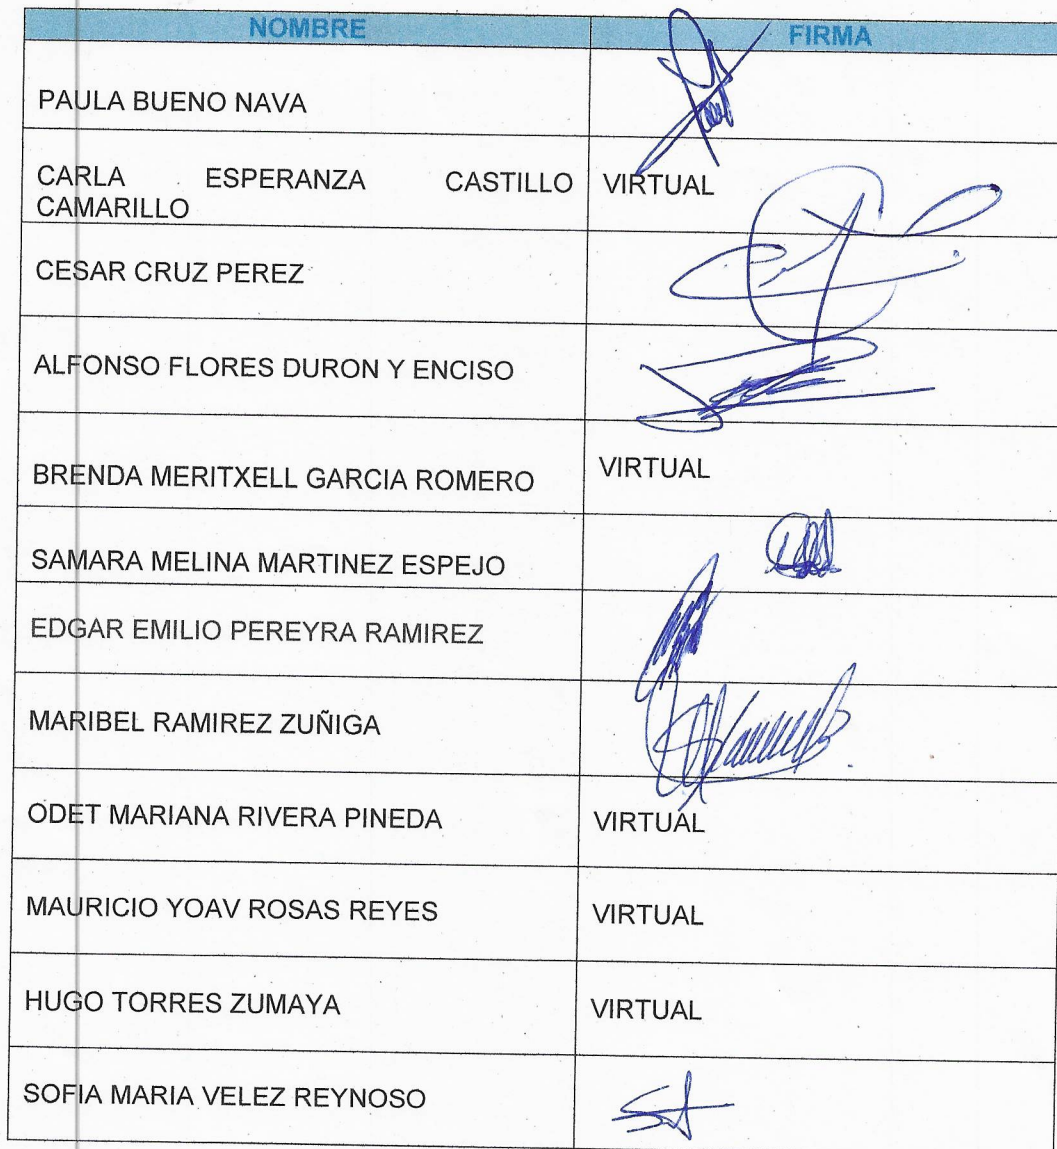 NOMBRE FIRMA
PAULA BUENO NAVA
CARLA ESPERANZA CASTILLO VIRTUAL
CAMARILLO
CESAR CRUZ PEREZ
ALFONSO FLORES DURON Y ENCISO
BRENDA MERITXELL GARCIA ROMERO VIRTUAL
SAMARA MELINA MARTINEZ ESPEJO
EDGAR EMILIO PEREYRA RAMIREZ
MARIBEL RAMIREZ ZUÑIGA
ODET MARIANA RIVERA PINEDA VIRTUAL
MAURICIO YOAV ROSAS REYES VIRTUAL
HUGO TORRES ZUMAYA VIRTUAL
SOFIA MARIA VELEZ REYNOSO